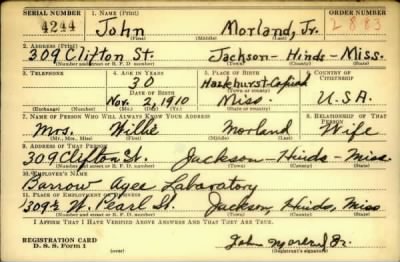 SERIAL NUMBER 1. NAME (Print) ORDER NUMBER
4244 John Morland, Jr. 2883
(First) (Middle) (Last)
2. ADDRESS (Print)
309 Clifton St. Jackson - Hinds - Miss.
(Number and street or R. F. D. number) (Town) (County) (State)
3. TELEPHONE 4. AGE IN YEARS 5. PLACE OF BIRTH 6. COUNTRY OF CITIZENSHIP
30 Hazlehurst-Copiah
DATE OF BIRTH (Town or county)
Nov. 2, 1910 Miss. U.S.A.
(Exchange) (Number) (Mo.) (Day) (Yr.) (State or country)
7. NAME OF PERSON WHO WILL ALWAYS KNOW YOUR ADDRESS 8. RELATIONSHIP OF THAT PERSON
Mrs. Willie Morland Wife
(Mr., Mrs., Miss) (First) (Middle) (Last)
9. ADDRESS OF THAT PERSON
309 Clifton St. Jackson - Hinds - Miss
(Number and street or R. F. D. number) (Town) (County) (State)
10. EMPLOYER'S NAME
Barrow Agee Labaratory
11. PLACE OF EMPLOYMENT OR BUSINESS
309½ W. Pearl St. Jackson, Hinds, Miss
(Number and street or R. F. D. number) (Town) (County) (State)
I AFFIRM THAT I HAVE VERIFIED ABOVE ANSWERS AND THAT THEY ARE TRUE.
REGISTRATION CARD
D. S. S. Form 1 (over) John Morland Jr.
(Registrant's signature)